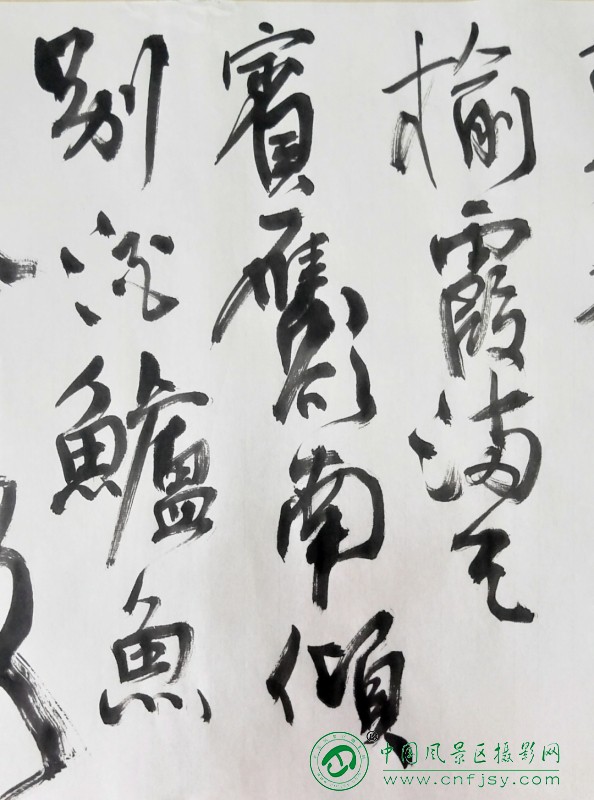 榆霞满天
賓鷹南傾
别浥鱸魚
中国风景区摄影网
www.cnfjsy.com